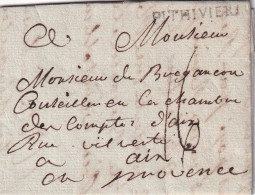 PITHIVIERS
A Monsieur
Monsieur de Bregancon
Conseiller en la chambre
des Comptes d'aix
Rue vilverte
a aix
en provence